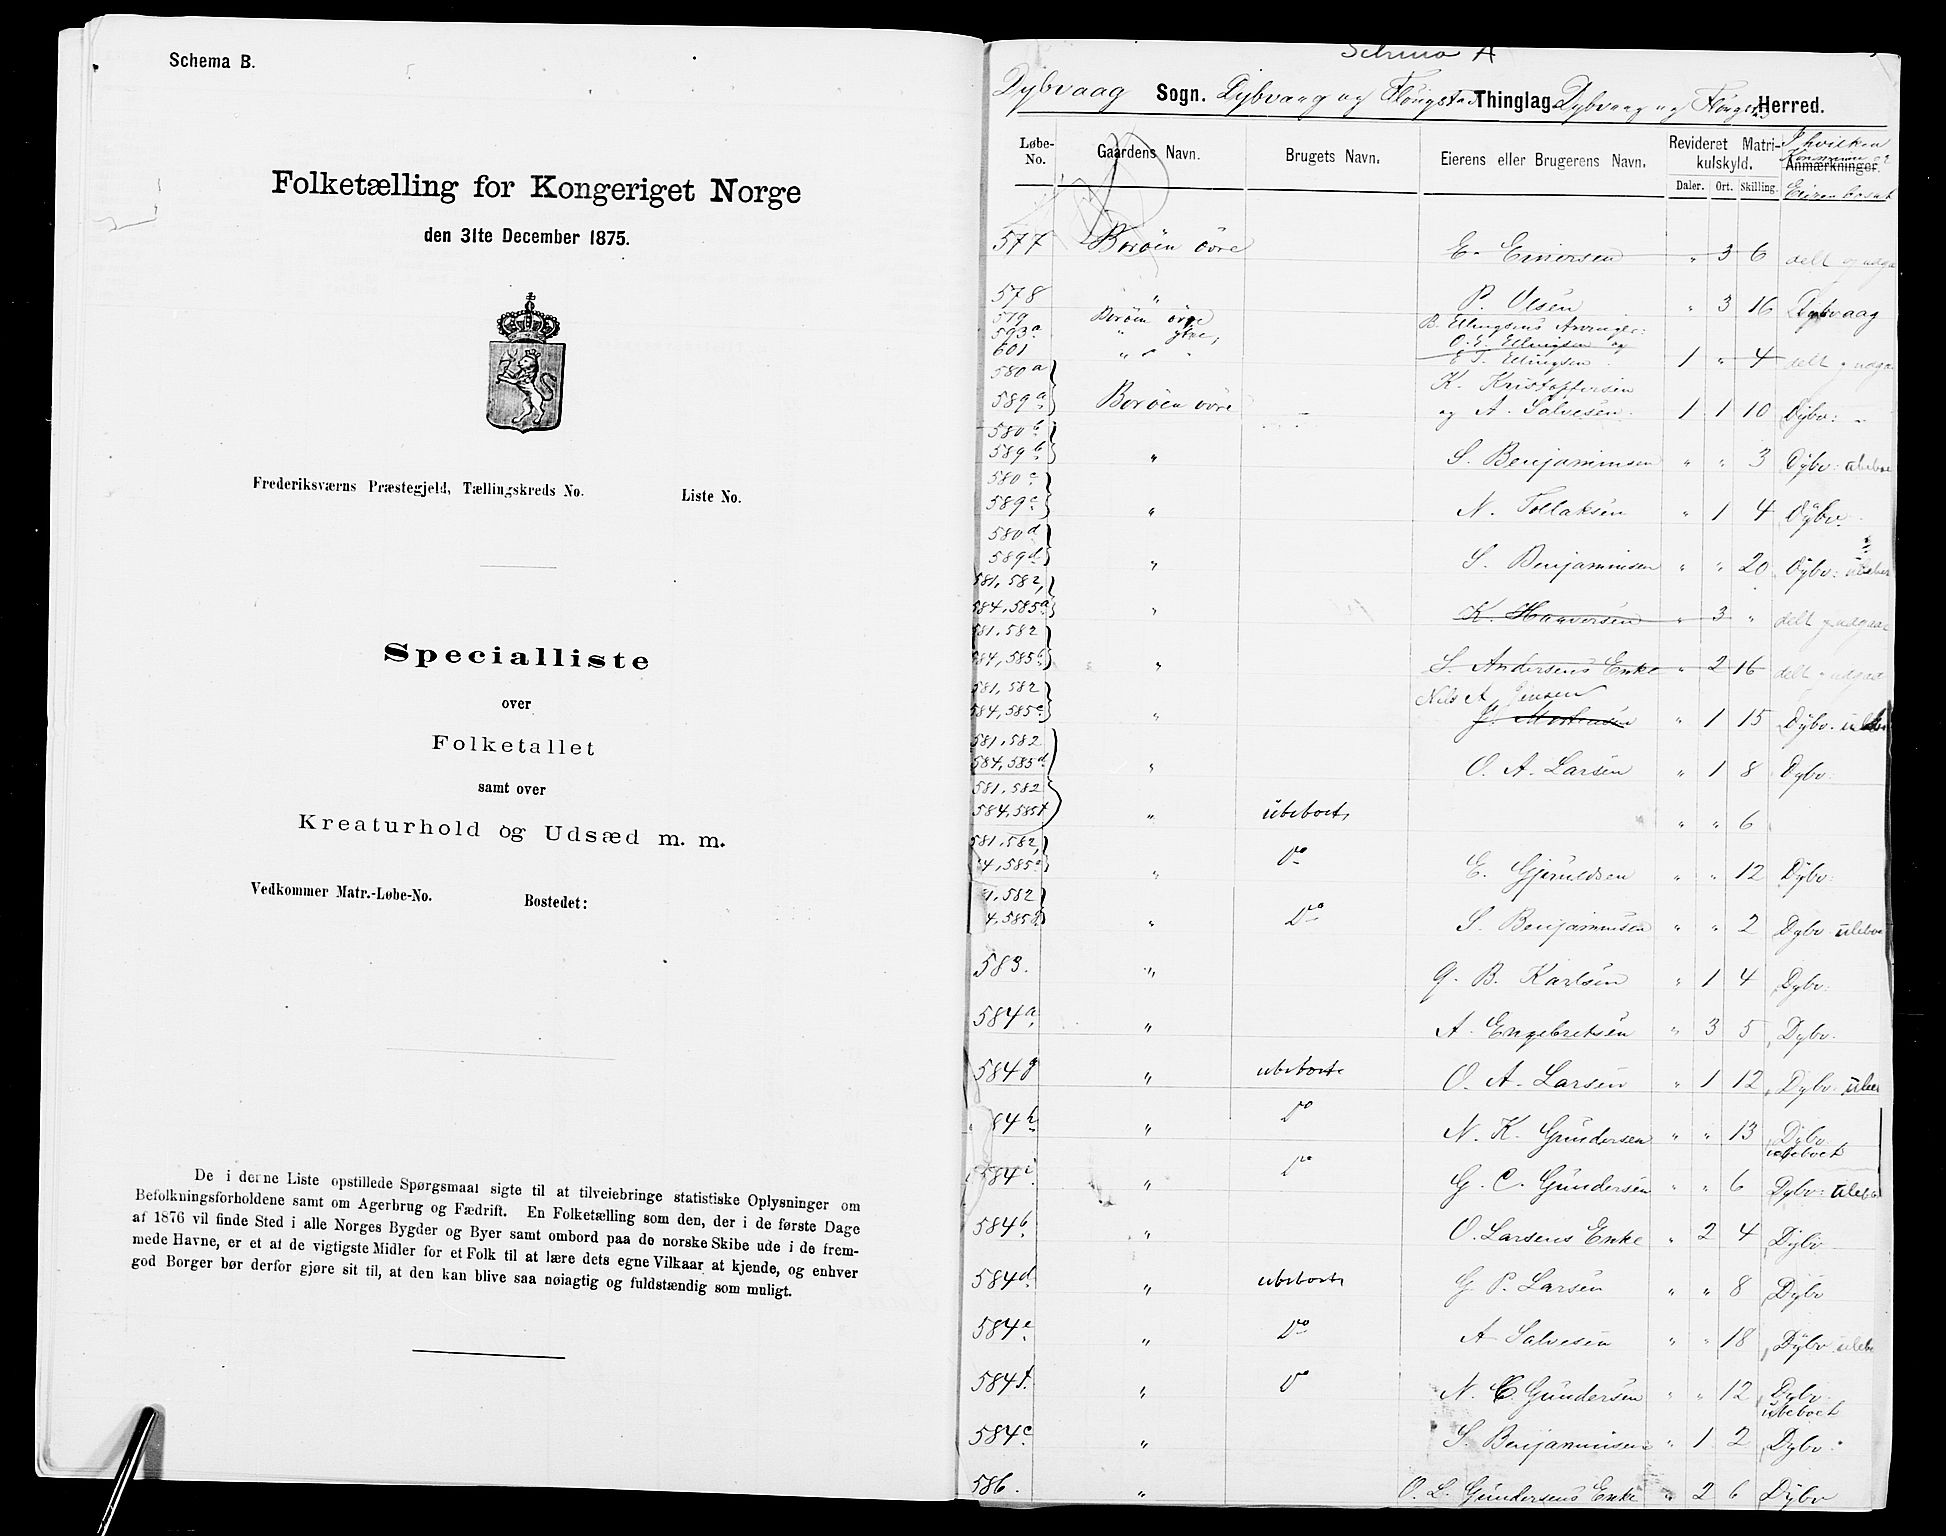 Schema B.
Folketælling for Kongeriget Norge
den 31te December 1875.
Frederiksværns Præstegjeld, Tællingskreds No. Liste No.
Specialliste
over
Folketallet
samt over
Kreaturhold og Udsæd m. m.
Vedkommer Matr.-Løbe-No. Bostedet:
De i denne Liste opstillede Spørgsmaal sigte til at tilveiebringe statistiske Oplysninger om
Befolkningsforholdene samt om Agerbrug og Fædrift. En Folketælling som den, der i de første Dage
af 1876 vil finde Sted i alle Norges Bygder og Byer samt ombord paa de norske Skibe ude i de frem-
mede Havne, er et af de vigtigste Midler for et Folk til at lære dets egne Vilkaar at kjende, og enhver
god Borger bør derfor gjøre sit til, at den kan blive saa nøiagtig og fuldstændig som muligt.
Schema A
Dybvaag Sogn. Dybvaag og Thinglag. Dybvaag og Herred.
Løbe-No. Gaardens Navn. Brugets Navn. Eierens eller Brugerens Navn. Revideret Matrikulskyld. Anmærkninger. I hvilken
Daler. Ort. Skilling. Eieren bosat
577 Boröen övre E. Einersen " 3 6 delt og udgaa
578 " P. Olsen " 3 16 Dybvaag
579 Boröen övre B. Ellingsens Arvinger:
593a " ytre, O. E. Ellingsen og
601 " " " E. T. Ellingsen 1 " 4 delt og udgaa
580a K. Kristoffersen
589a Boröen övre og A. Salvesen 1 1 10 Dybv:
580b
589b " S. Benjaminsen " " 3 Dybv: ubeboe
580c
589c " N. Tollaksen " 1 4 Dybv.
580d
589d " S. Benjaminsen " " 20 Dybv: ubeboe
581, 582,
584, 585a " K. Haaversen " 3 " delt og udgaa
581, 582
584, 585b " L. Andersens Enke " 2 16 delt og udgaa
581, 582 Nils A. Jensen
584, 585c " J. Mortensen " 1 15 Dybv.
581, 582
584, 585d " O. A. Larsen " 1 8 Dybv:
581, 582
584, 585f " ubeboet " " 6
581, 582,
4, 585e " Do E. Gjeruldsen " " 12 Dybv:
1, 582
4, 585g " Do S. Benjaminsen " " 2 Dybv. ubeboe
583. " G. B. Karlsen " 1 4 Dybv:
584a " A. Engebretsen " 3 5 Dybv.
584g " ubeboet O. A. Larsen " 1 12 Dybv. ubeb
84h " Do N. K. Gundersen " " 13 Dybv
ubeboet
584i " Do G. C. Gundersen " " 6 Dybv: ubeb
584b " O. Larsens Enke " 2 4 Dybv
584d " ubeboet G. P. Larsen " " 8 Dybv
584e " Do A Salvesen " " 18 Dybv ubeb
584f. " Do N. C. Gundersen " " 12 Dybv.
ubeboet
584c " S. Benjaminsen " 1 2 Dybv.
586. " O. L. Gundersens Enke " 2 6 Dybv